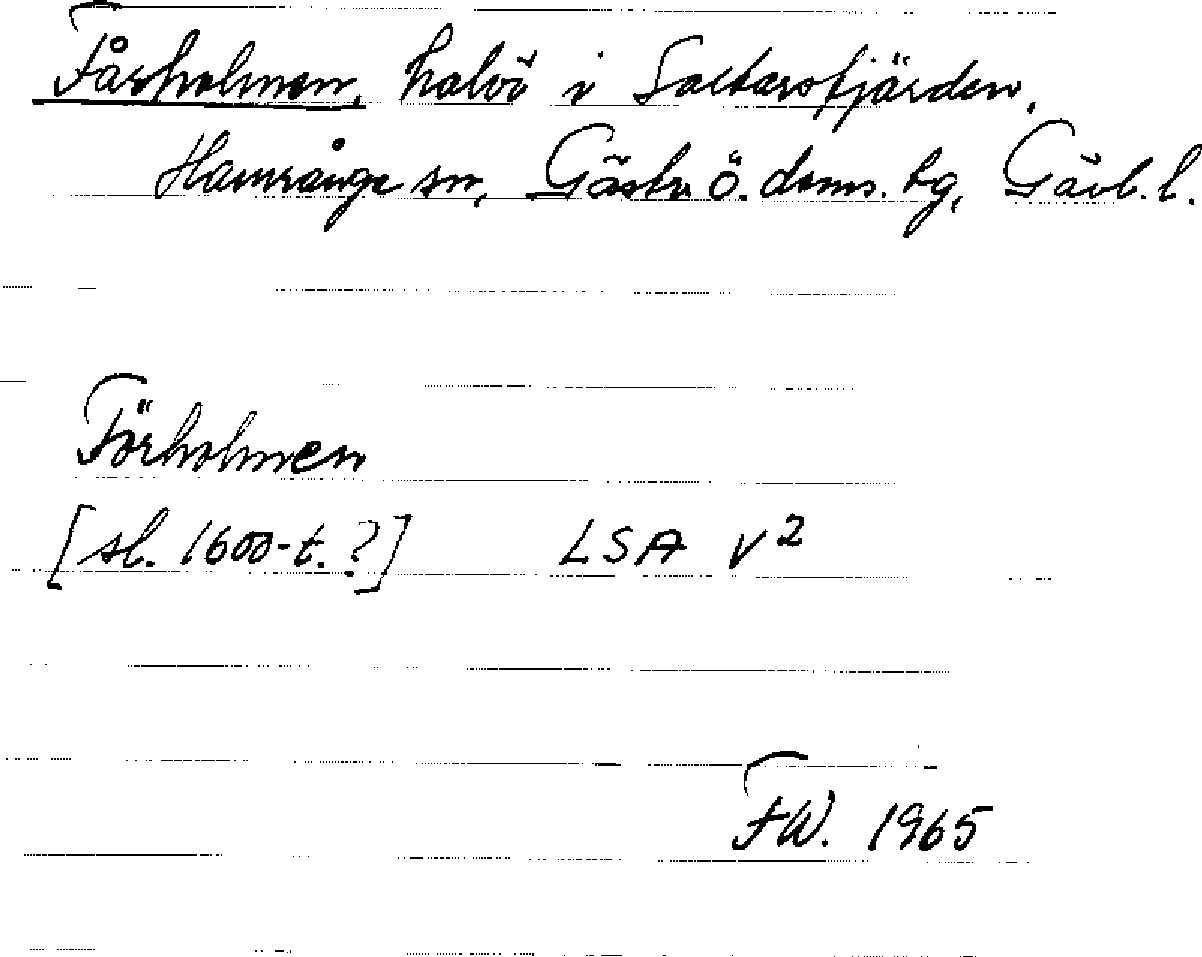 Fårholmen, halvö i Saltarsfjärden,
Hamrånge sn, Gästr. ö. doms. tg, Gävl. l.
Förholmen
[sl. 1600-t.?] LSA V²
FW. 1965